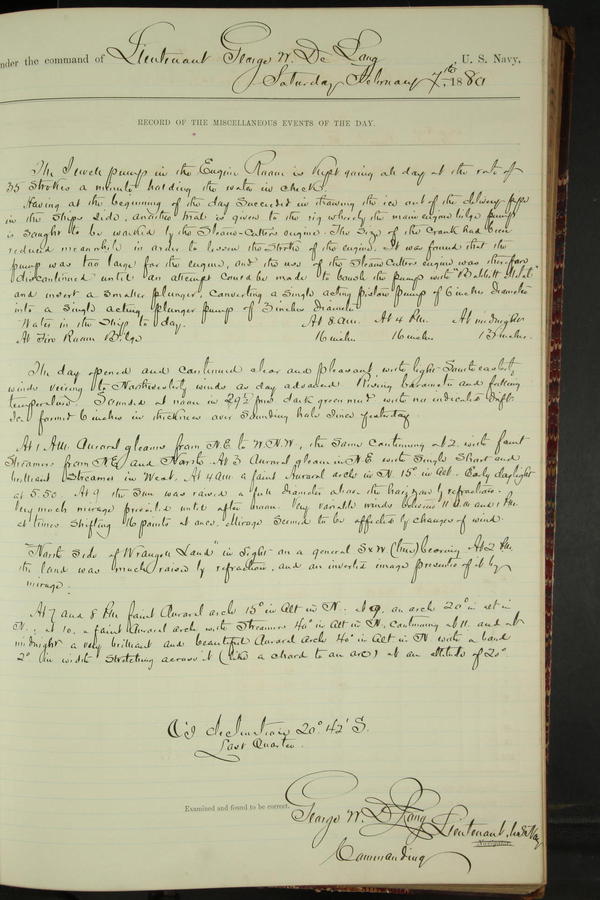 nder the command of Lieutenant George W. De Long, U. S. Navy,
Saturday February 7th, 1880
RECORD OF THE MISCELLANEOUS EVENTS OF THE DAY.
The Sewell pump in the Engine Room is kept going all day at the rate of
35 strokes a minute holding the water in check.
Having at the beginning of the day succeeded in thawing the ice out of the delivery pipe
in the ships side, another trial is given to the rig whereby the main engine bilge pump
is sought to be worked by the Steam-Cutters engine. The size of the crank had been
reduced meanwhile in order to lessen the stroke of the engine. It was found that the
pump was too large for the engine, and the use of the Steam Cutters engine was therefore
discontinued until an attempt could be made to bush the pump with "Babbitt Metal"
and insert a smaller plunger, converting a single acting piston pump of 6 inches diameter
into a single acting plunger pump of 3 inches diameter.
Water in the Ship to day. At 8 am. At 4 Pm. At midnight
At Fire Room Bilge 16 inches 16 inches 15 inches.
The day opened and continued clear and pleasant with light South easterly
winds veering to Northwesterly winds as day advanced. Rising barometer and falling
temperature. Sounded at noon in 29 1/2 fms dark green mud with no indicated drift.
Ice formed 6 inches in thickness over sounding hole since yesterday.
At 1 AM. Auroral gleams from N.E to W.N.W., the same continuing at 2. with faint
streamers from NE, and North. At 3 Auroral gleam in N.E with single short and
brilliant streamer in West. At 4 am a faint Auroral arch in N. 15° in Alt. Early daylight
at 5.50. At 9 the sun was raised a full diameter above the horizon by refraction.
Very much mirage prevailed until after noon. Very variable winds between 11 AM and 1 Pm.
at times shifting 16 points at once. Mirage seemed to be affected by changes of wind.
"North side of Wrangel Land" in sight on a general SxW (true) bearing. At 2 Pm.
the land was much raised by refraction, and an inverted image presented of it by
mirage.
At 7 and 8 Pm faint Auroral arch 15° in Alt in N. at 9. an arch 20° in alt in
N.; at 10. a faint Auroral arch with streamers 40° in Alt in N. continuing at 11. and at
midnight a very brilliant and beautiful Auroral Arch 40° in Alt in N with a band
2° in width stretching across it (like a chord to an arc) at an altitude of 20°
declination 20° 42' S.
Last Quarter.
Examined and found to be correct.
George W. De Long Lieutenant, U.S. Navy
Navigator.
Commanding